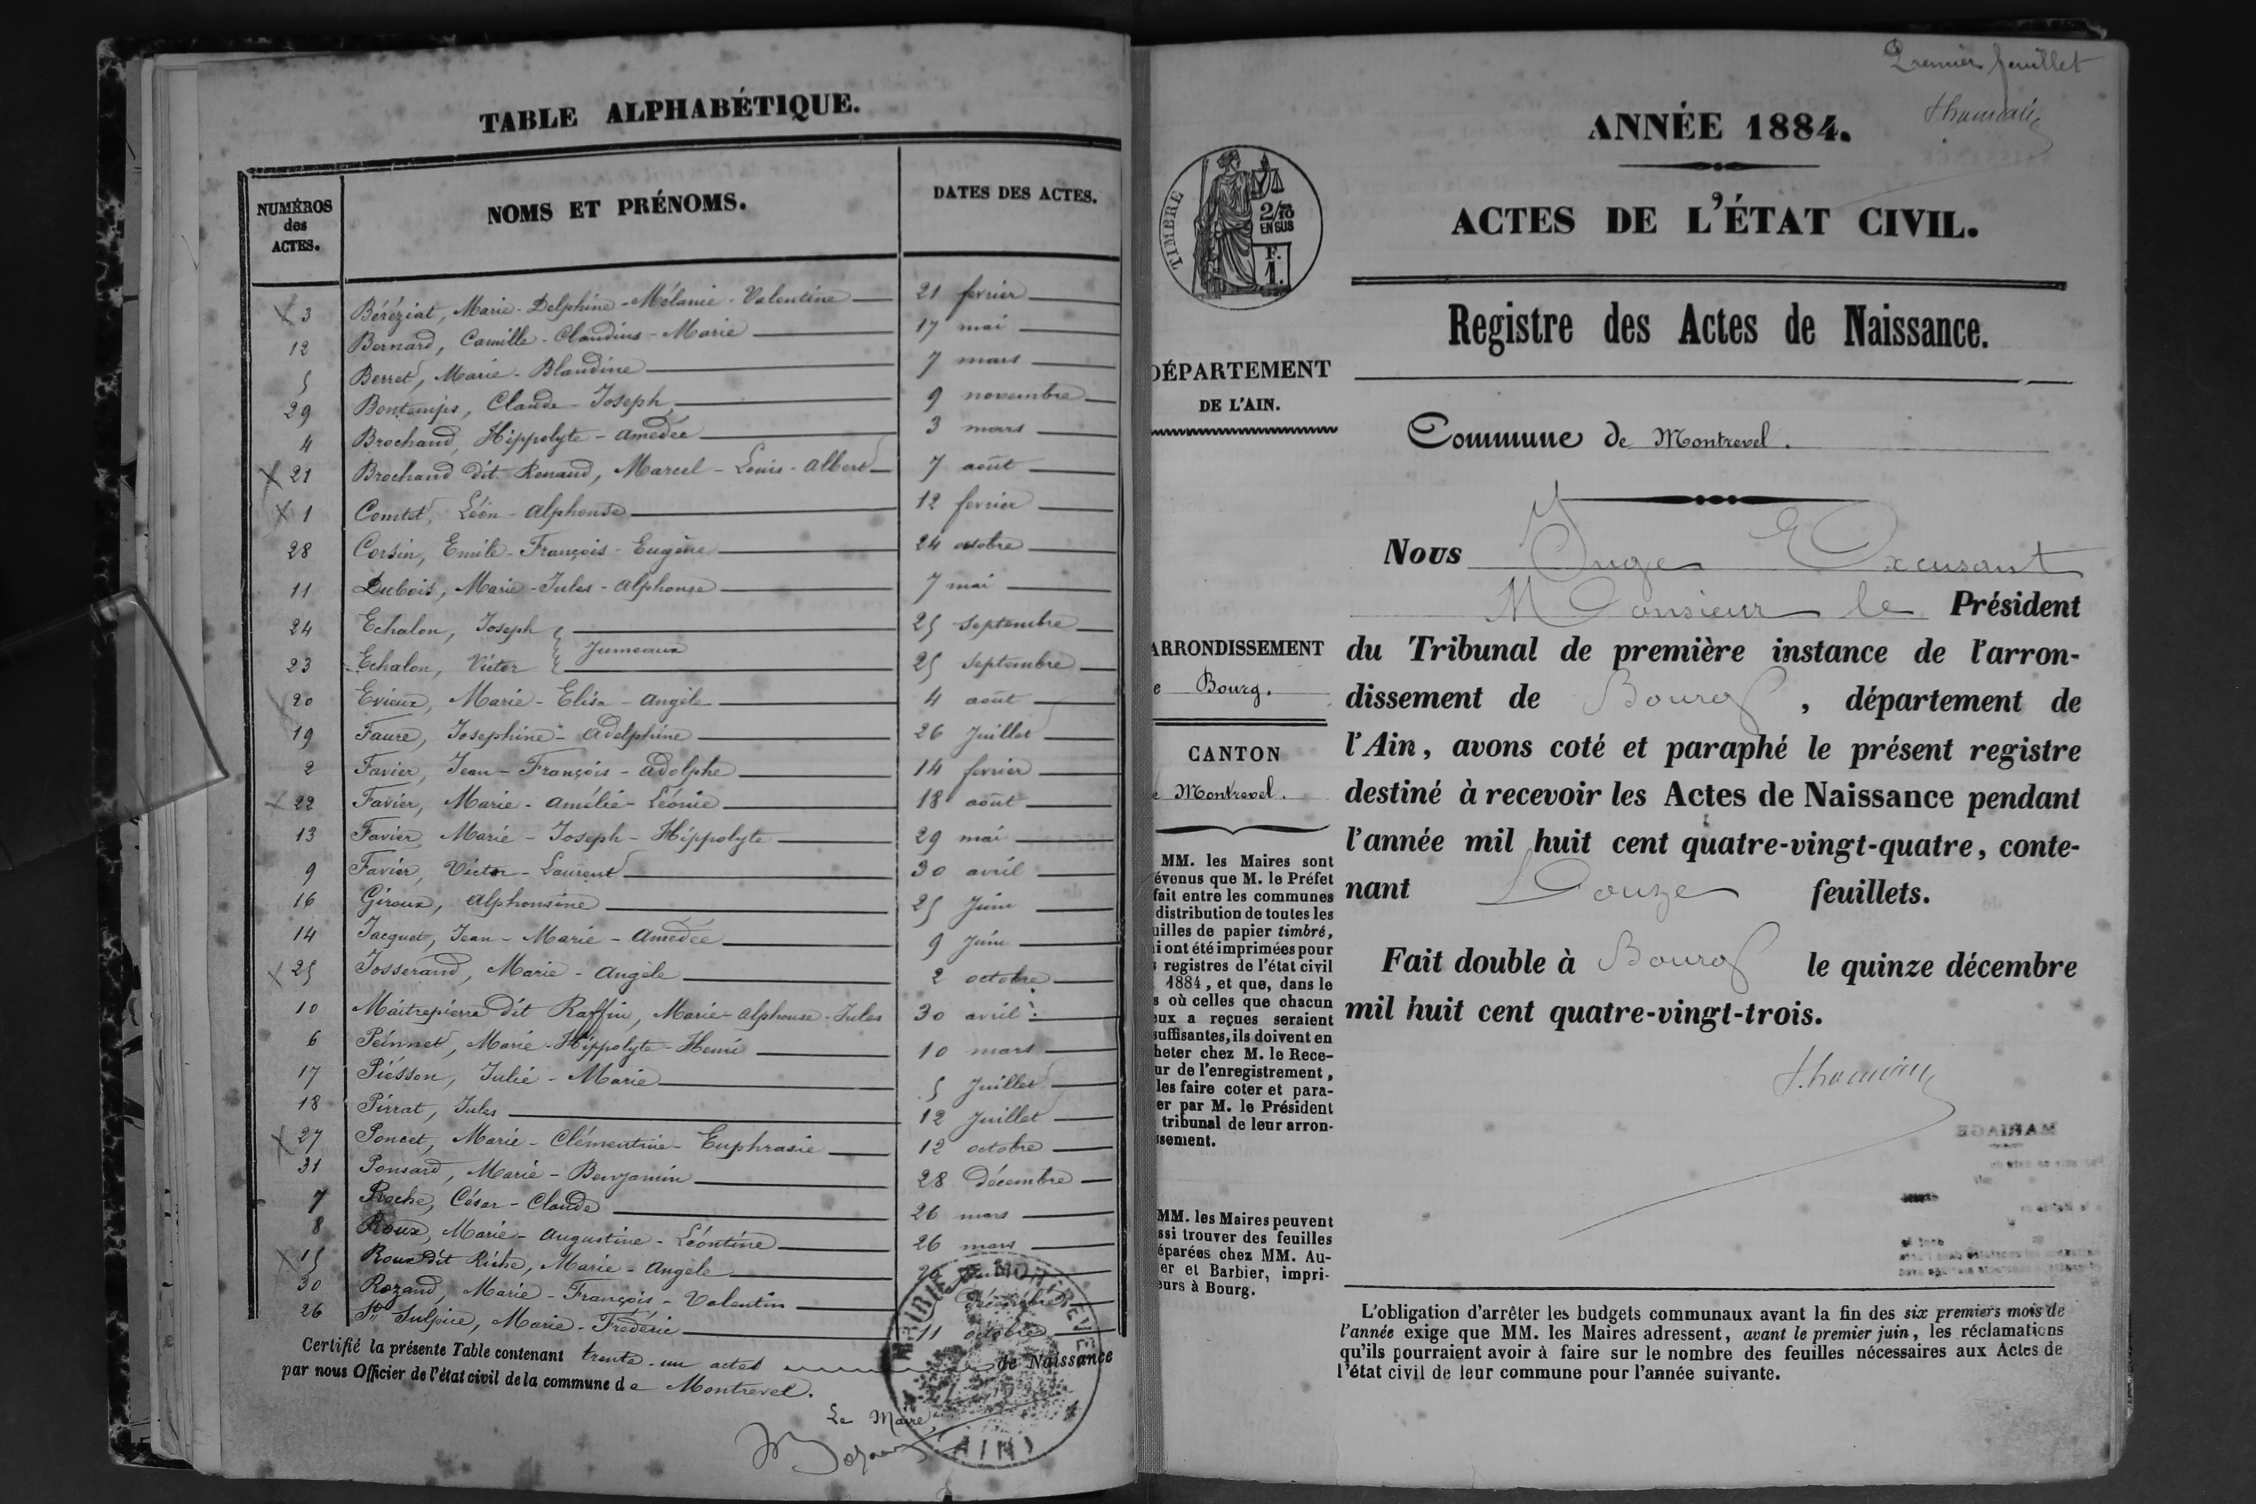 TABLE ALPHABÉTIQUE.
NUMÉROS des ACTES. NOMS ET PRÉNOMS. DATES DES ACTES.
3 Béréziat, Marie-Delphine-Mélanie-Valentine 21 fevrier
12 Bernard, Camille-Claudius-Marie 17 mai
5 Berret, Marie-Blandine 7 mars
29 Bontemps, Claude-Joseph 9 novembre
4 Brochand, Hippolyte-Amédée 3 mars
21 Brochand dit Renaud, Marcel-Louis-Albert 7 août
1 Comtet, Léon-Alphonse 12 fevrier
28 Corsin, Emile-François-Eugène 24 octobre
11 Dubois, Marie-Jules-Alphonse 7 mai
24 Echalon, Joseph 25 septembre
Jumeaux
23 Echalon, Victor 25 septembre
20 Evieux, Marie-Elisa-Angèle 4 août
19 Faure, Josephine-Adelphine 26 Juillet
2 Favier, Jean-François-Adolphe 14 fevrier
22 Favier, Marie-Amélie-Léonie 18 août
13 Favier, Marie-Joseph-Hippolyte 29 mai
9 Favier, Victor-Laurent 30 avril
16 Giroux, Alphonsine 25 Juin
14 Jacquet, Jean-Marie-Amédée 9 Juin
25 Josserand, Marie-Angèle 2 octobre
10 Maitrepierre dit Raffin, Marie-Alphonse-Jules 30 avril
6 Peinnet, Marie-Hippolyte-Henri 10 mars
17 Piesson, Julie-Marie 5 Juillet
18 Pirrat, Jules 12 Juillet
27 Poncet, Marie-Clémentine-Euphrasie 12 octobre
31 Ponsard, Marie-Benjamin 28 Décembre
7 Roche, César-Claude 26 mars
8 Roux, Marie-Augustine-Léontine 26 mars
15 Roux dit Riche, Marie-Angèle 20
30 Rozand, Marie-François-Valentin Décembre
26 St Sulpice, Marie-Frédéric 11 octobre
Certifié la présente Table contenant trente-un actes de Naissance
par nous Officier de l'état civil de la commune de Montrevel.
Le Maire
MAIRIE DE MONTREVEL
(AIN)
Premier feuillet
ANNÉE 1884.
ACTES DE L'ÉTAT CIVIL.
TIMBRE
2/10
EN SUS
F.
1.
Registre des Actes de Naissance.
DÉPARTEMENT
DE L'AIN.
Commune de Montrevel.
Nous Juge Excusant
Monsieur le Président
ARRONDISSEMENT
e Bourg.
CANTON
e Montrevel.
du Tribunal de première instance de l'arron-
dissement de Bourg, département de
l'Ain, avons coté et paraphé le présent registre
destiné à recevoir les Actes de Naissance pendant
l'année mil huit cent quatre-vingt-quatre, conte-
nant Douze feuillets.
Fait double à Bourg le quinze décembre
mil huit cent quatre-vingt-trois.
MM. les Maires sont
évenus que M. le Préfet
fait entre les communes
distribution de toutes les
uilles de papier timbré,
i ont été imprimées pour
s registres de l'état civil
1884, et que, dans le
s où celles que chacun
eux a reçues seraient
suffisantes, ils doivent en
heter chez M. le Rece-
ur de l'enregistrement,
les faire coter et para-
er par M. le Président
tribunal de leur arron-
ssement.
MM. les Maires peuvent
ssi trouver des feuilles
éparées chez MM. Au-
er et Barbier, impri-
eurs à Bourg.
MARIAGE
L'obligation d'arrêter les budgets communaux avant la fin des six premiers mois de
l'année exige que MM. les Maires adressent, avant le premier juin, les réclamations
qu'ils pourraient avoir à faire sur le nombre des feuilles nécessaires aux Actes de
l'état civil de leur commune pour l'année suivante.